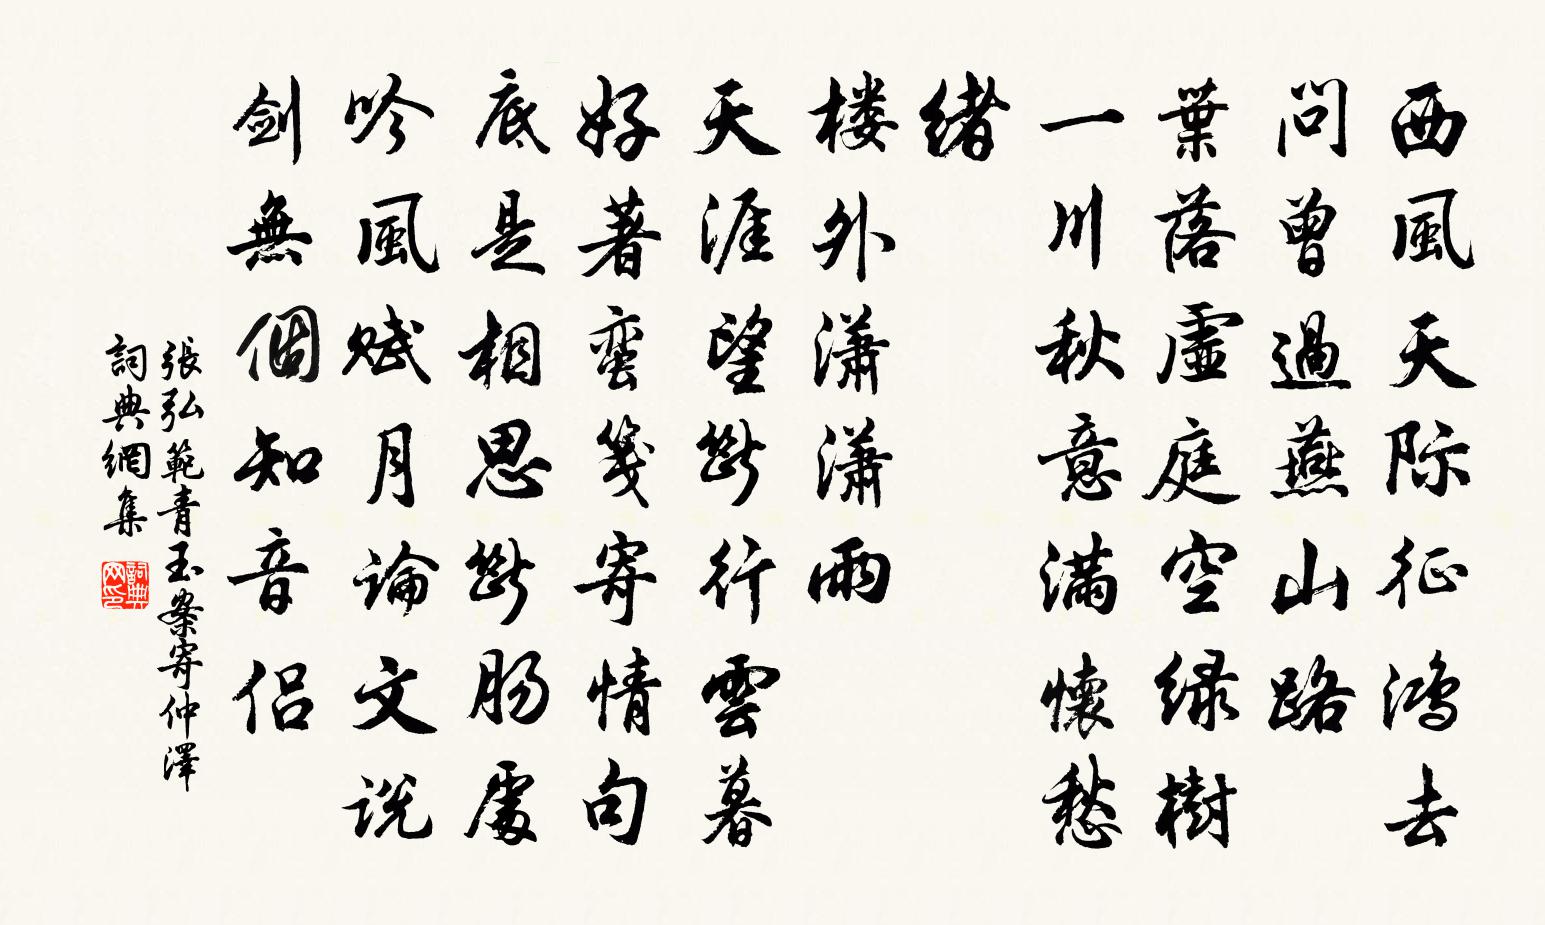 西風天际征鴻去
問曾過燕山路
葉落虛庭空緑樹
一川秋意滿懷愁
緒
楼外瀟瀟雨
天涯望斷行雲暮
好著蛮箋寄情句
底是相思斷腸處
吟風赋月論文説
剑無個知音侣
張弘範青玉案寄仲澤
詞典網集
詞典网印